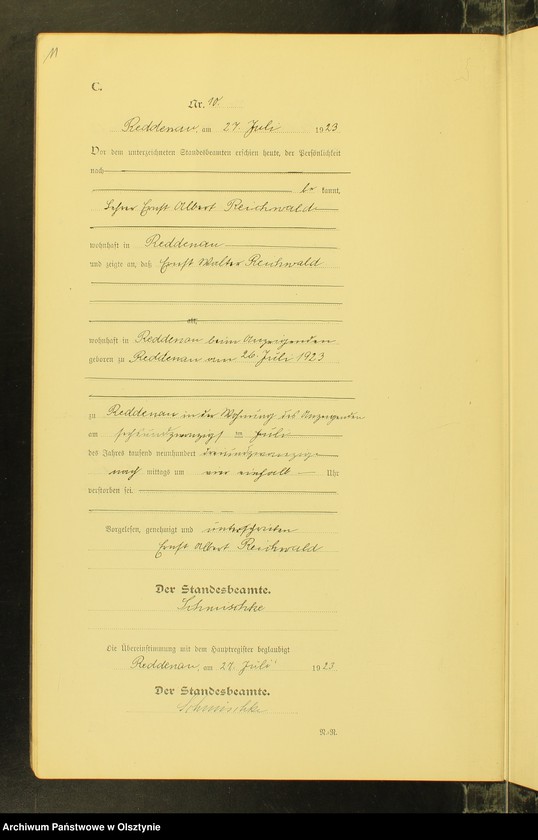 11
C.
Nr. 10.
Reddenau, am 27. Juli 1923
Vor dem unterzeichneten Standesbeamten erschien heute, der Persönlichkeit
nach
be kannt,
Lehrer Ernst Albert Reichwald
wohnhaft in Reddenau
und zeigte an, daß Ernst Walter Reichwald
alt,
wohnhaft in Reddenau beim Anzeigenden
geboren zu Reddenau am 26. Juli 1923
zu Reddenau in der Wohnung des Anzeigenden
am sechsundzwanzigsten Juli
des Jahres tausend neunhundert dreiundzwanzig
nach mittags um einhalb Uhr
verstorben sei.
Vorgelesen, genehmigt und unterschrieben
Ernst Albert Reichwald
Der Standesbeamte.
Schmischke
Die Übereinstimmung mit dem Hauptregister beglaubigt
Reddenau, am 27. Juli 1923.
Der Standesbeamte.
Schmischke
R.-R.
Archiwum Państwowe w Olsztynie